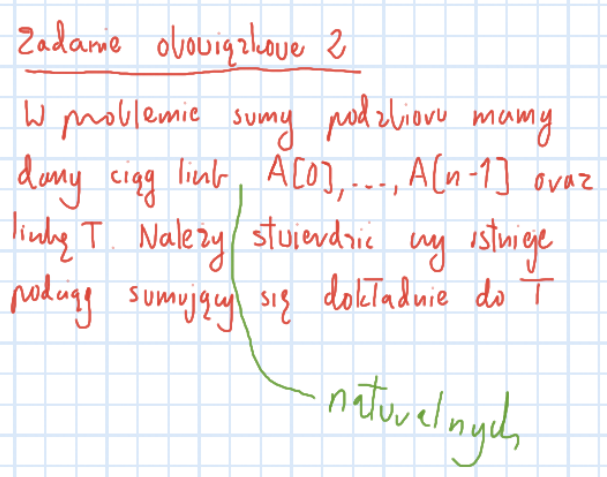 Zadanie obowiązkowe 2
W problemie sumy podzbioru mamy
dany ciąg liczb A[0],..., A[n-1] oraz
liczbę T. Należy stwierdzić czy istnieje
podciąg sumujący się dokładnie do T
naturalnych